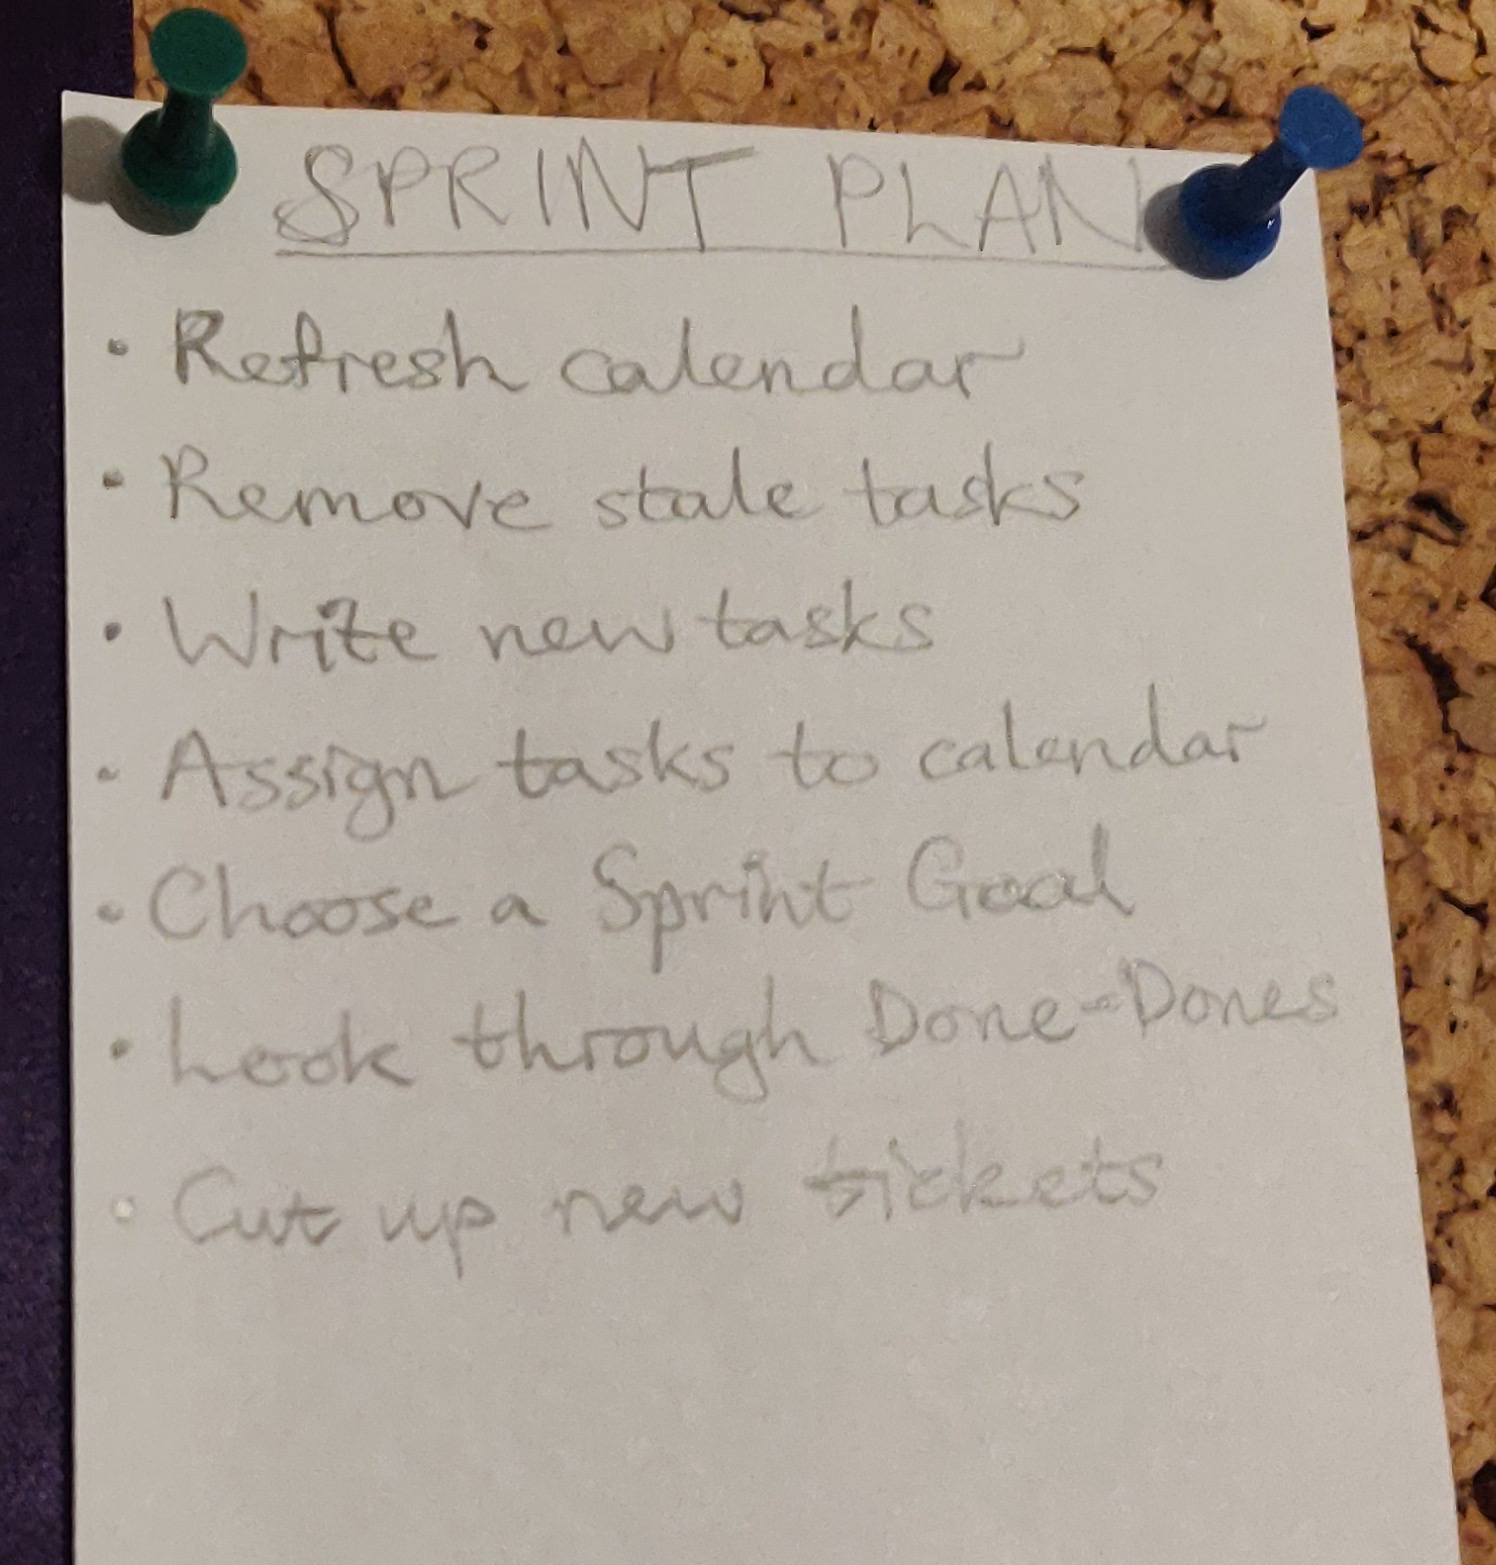 SPRINT PLAN
• Refresh calendar
• Remove stale tasks
• Write new tasks
• Assign tasks to calendar
• Choose a Sprint Goal
• Look through Done-Dones
• Cut up new tickets